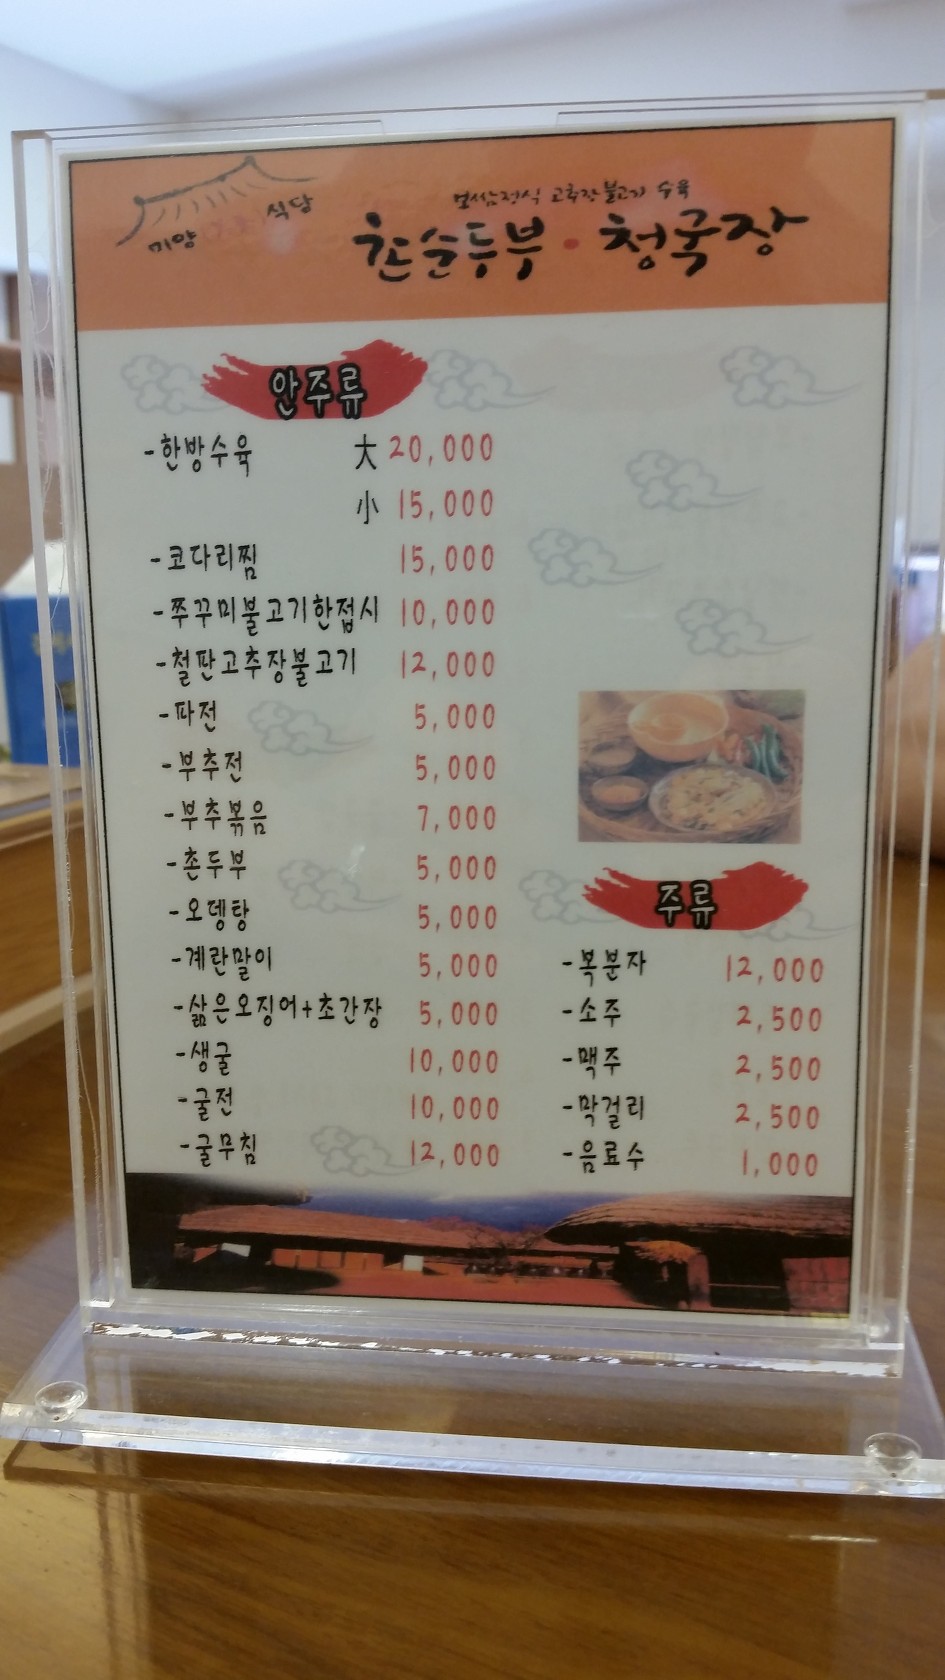 미양 식당
보쌈정식 고추장불고기 수육
촌순두부·청국장
안주류
-한방수육 大 20,000
小 15,000
-코다리찜 15,000
-쭈꾸미불고기한접시 10,000
-철판고추장불고기 12,000
-파전 5,000
-부추전 5,000
-부추볶음 7,000
-촌두부 5,000
-오뎅탕 5,000
-계란말이 5,000
-삶은오징어+초간장 5,000
-생굴 10,000
-굴전 10,000
-굴무침 12,000
주류
-복분자 12,000
-소주 2,500
-맥주 2,500
-막걸리 2,500
-음료수 1,000